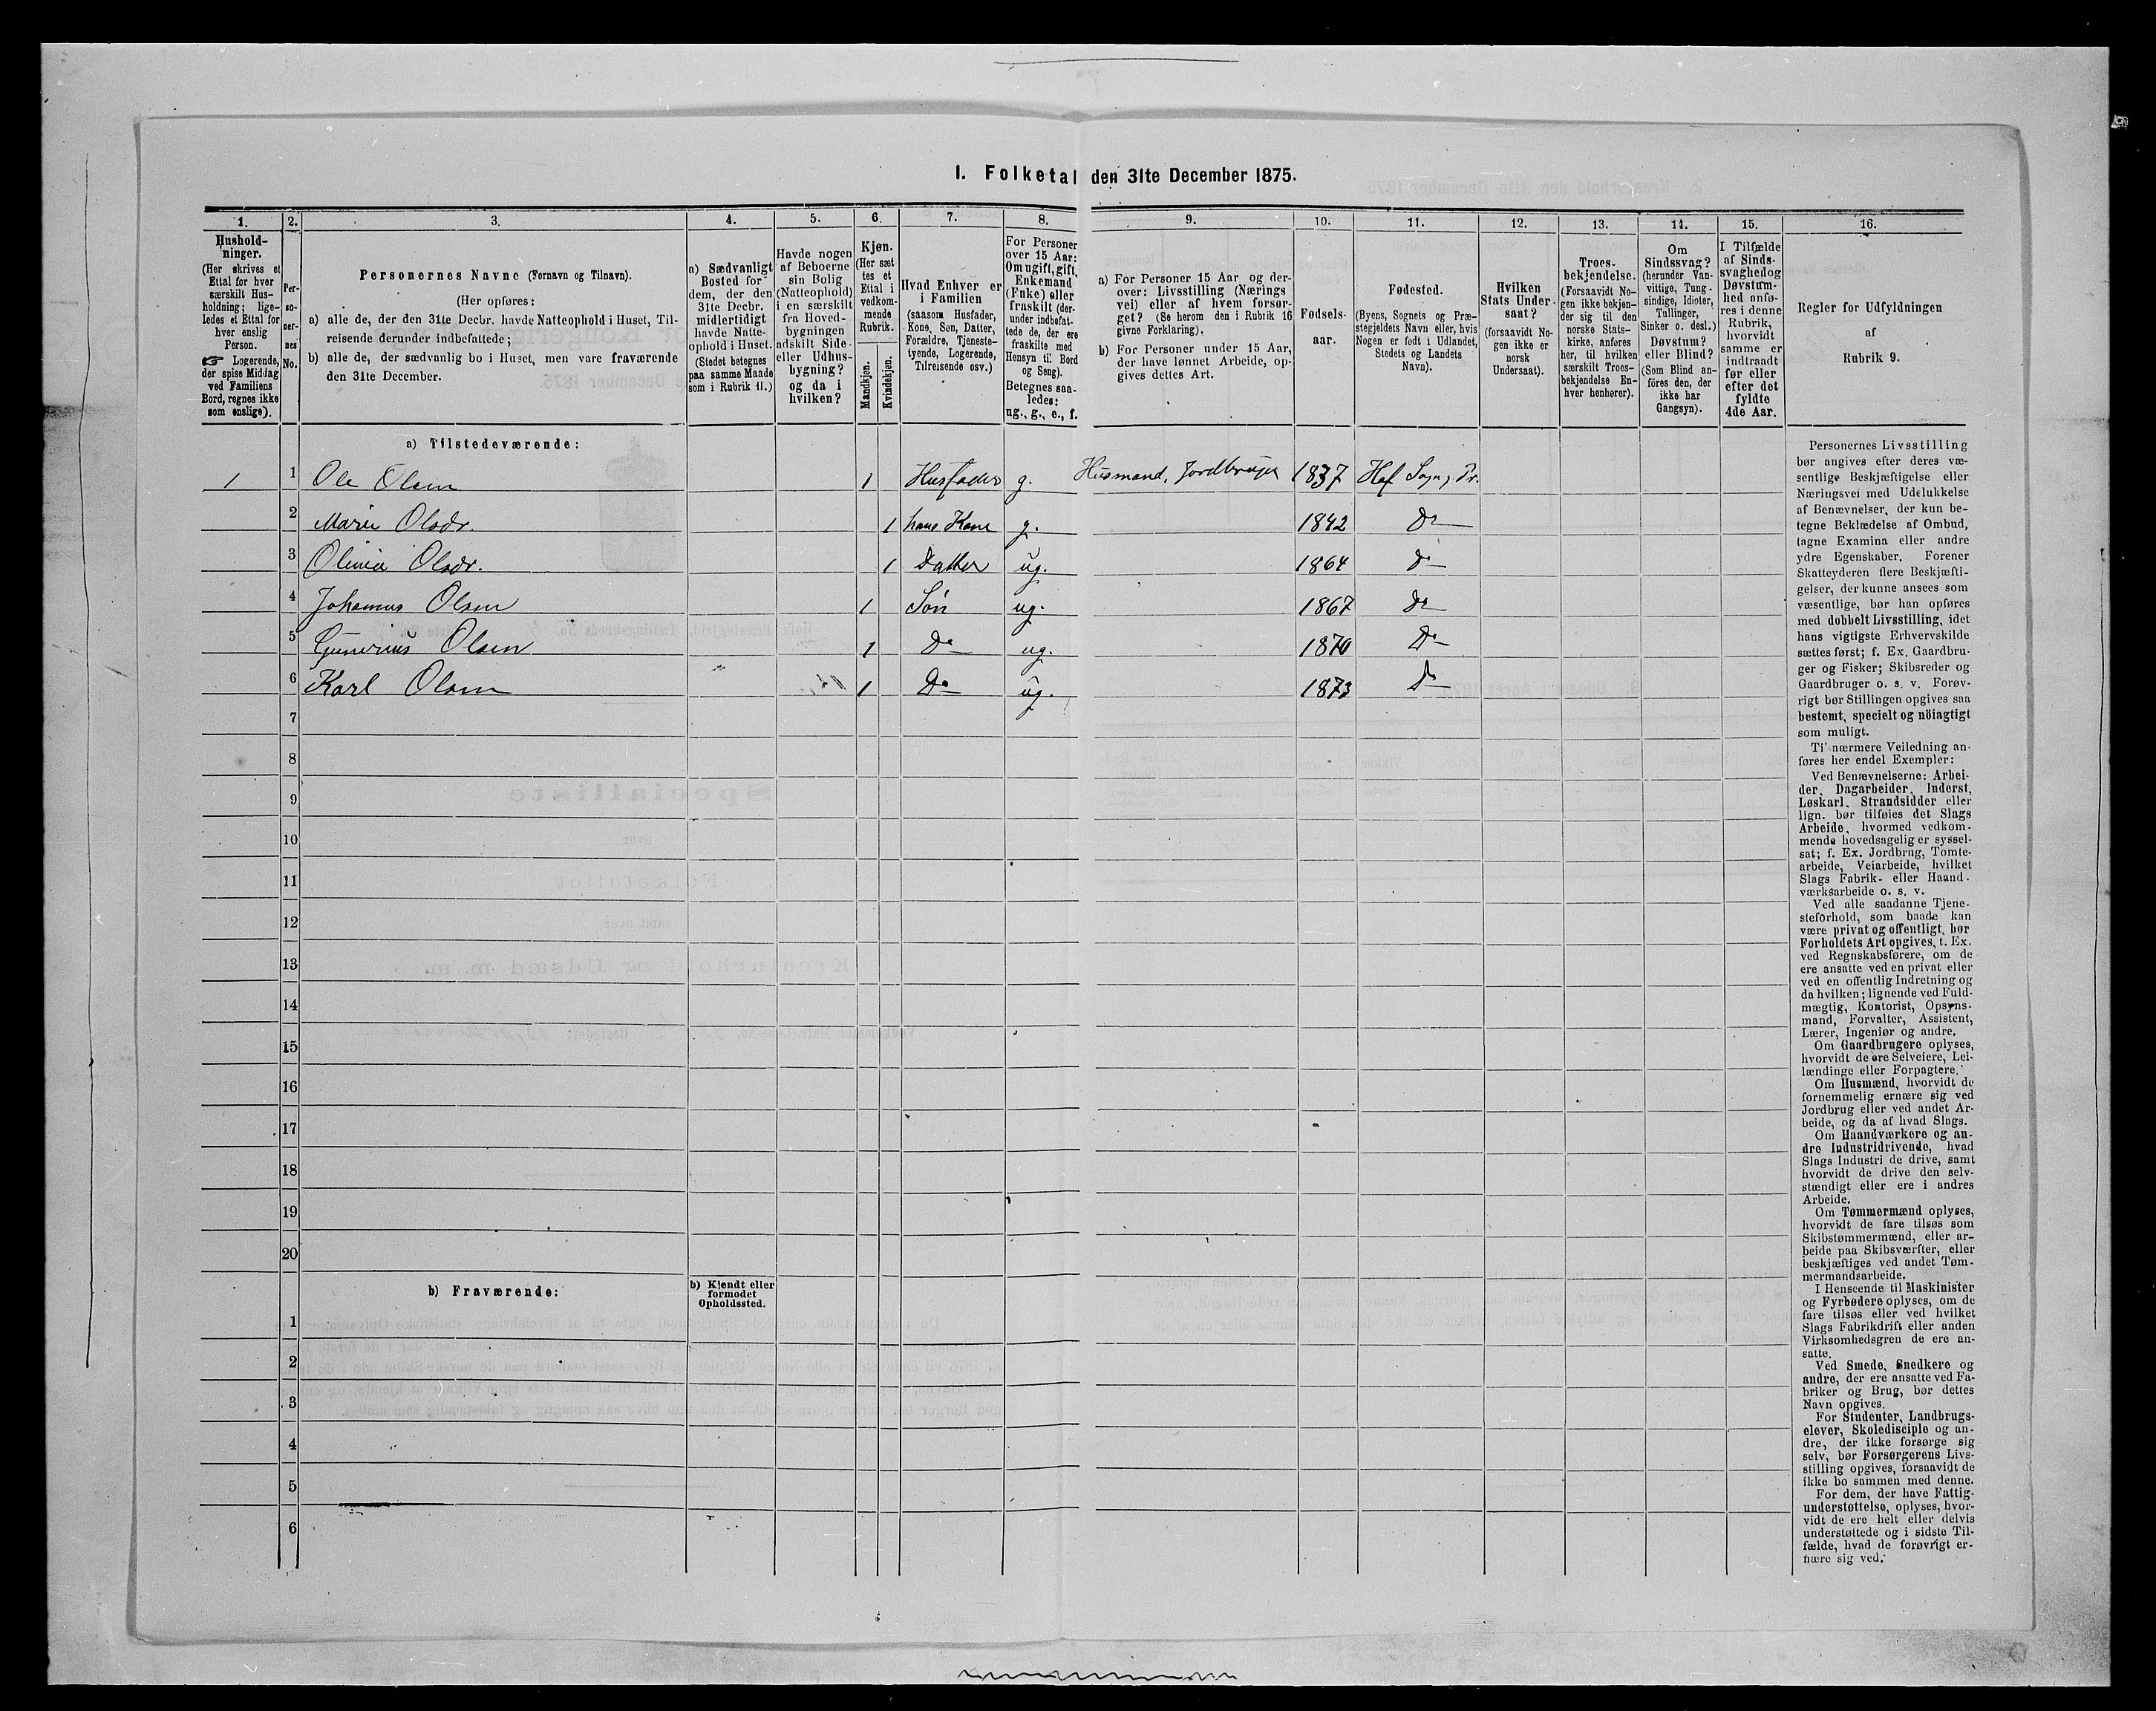 I. Folketal den 31te December 1875.
1.
2.
3.
4.
5.
6.
7.
8.
9.
10.
11.
12.
13.
14.
15.
16.
Hushold-
ninger.
(Her skrives et
Ettal for hver
særskilt Hus-
holdning; lige-
ledes et Ettal for
hver enslig
Person.
☞ Logerende,
der spise Middag
ved Familiens
Bord, regnes ikke
som enslige).
Per-
so-
ner-
nes
No.
Personernes Navne (Fornavn og Tilnavn).
(Her opføres:
a) alle de, der den 31te Decbr. havde Natteophold i Huset, Til-
reisende derunder indbefattede;
b) alle de, der sædvanlig bo i Huset, men vare fraværende
den 31te December.
a) Sædvanligt
Bosted for
dem, der den
31te Decbr.
midlertidigt
havde Natte-
ophold i Huset.
(Stedet betegnes
paa samme Maade
som i Rubrik 11.)
Havde nogen
af Beboerne
sin Bolig
(Natteophold)
i en særskilt
fra Hoved-
bygningen
adskilt Side-
eller Udhus-
bygning?
og da i
hvilken?
Kjøn.
(Her sæt
tes et
Ettal i
vedkom-
mende
Rubrik.
Mandkjøn.
Kvindekjøn.
Hvad Enhver er
i Familien
(saasom Husfader,
Kone, Søn, Datter,
Forældre, Tjeneste-
tyende, Logerende,
Tilreisende osv.)
For Personer
over 15 Aar:
Om ugift, gift,
Enkemand
(Enke) eller
fraskilt (der-
under indbefat-
tede de, der ere
fraskilte med
Hensyn til Bord
og Seng).
Betegnes saa-
ledes:
ug., g., e., f.
a) For Personer 15 Aar og der-
over: Livsstilling (Nærings
vei) eller af hvem forsør-
get? (Se herom den i Rubrik 16
givne Forklaring).
b) For Personer under 15 Aar,
der have lønnet Arbeide, op-
gives dettes Art.
Fødsels-
aar.
Fødested.
(Byens, Sognets og Præ-
stegjeldets Navn eller, hvis
Nogen er født i Udlandet,
Stedets og Landets
Navn).
Hvilken
Stats Under-
saat?
(forsaavidt No-
gen ikke er
norsk
Undersaat).
Troes-
bekjendelse.
(Forsaavidt No-
gen ikke bekjen-
der sig til den
norske Stats-
kirke, anføres
her, til hvilken
særskilt Troes-
bekjendelse En-
hver henhører).
Om
Sindssvag?
(herunder Van-
vittige, Tung-
sindige, Idioter,
Tullinger,
Sinker o. desl.)
Døvstum?
eller Blind?
(Som Blind an-
föres den, der
ikke har
Gangsyn).
I Tilfælde
af Sinds-
svaghed og
Døvstum-
hed anfø-
res i denne
Rubrik,
hvorvidt
samme er
indtraadt
før eller
efter det
fyldte
4de Aar.
Regler for Udfyldningen
af
Rubrik 9.
a) Tilstedeværende:
1 1 Ole Olsen 1 Husfader g. Husmand, Jordbruger 1837 Hof Sogn, Pr.
2 Marie Olsdr. 1 hans Kone g. 1842 Do
3 Olivia Olsdr. 1 Datter ug. 1864 Do
4 Johannes Olsen 1 Søn ug. 1867 Do
5 Gunerius Olsen 1 Do ug. 1870 Do
6 Karl Olsen 1 Do ug. 1873 Do
7
8
9
10
11
12
13
14
15
16
17
18
19
20
b) Fraværende:
b) Kjendt eller
formodet
Opholdssted.
1
2
3
4
5
6
Personernes Livsstilling
bør angives efter deres væ-
sentlige Beskjæftigelse eller
Næringsvei med Udelukkelse
af Benævnelser, der kun be-
tegne Beklædelse af Ombud,
tagne Examina eller andre
ydre Egenskaber. Forener
Skatteyderen flere Beskjæfti-
gelser, der kunne ansees som
væsentlige, bør han opføres
med dobbelt Livsstilling, idet
hans vigtigste Erhvervskilde
sættes først; f. Ex. Gaardbru-
ger og Fisker; Skibsreder og
Gaardbruger o. s. v. Forøv-
rigt bør Stillingen opgives saa
bestemt, specielt og nöiagtigt
som muligt.
Ti' nærmere Veiledning an-
føres her endel Exempler:
Ved Benævnelserne: Arbei-
der, Dagarbeider, Inderst,
Løskarl, Strandsidder eller
lign. bør tilføies det Slags
Arbeide, hvormed vedkom-
mende hovedsagelig er syssel-
sat; f. Ex. Jordbrug, Tomte-
arbeide, Veiarbeide, hvilket
Slags Fabrik- eller Haand-
værksarbeide o. s. v.
Ved alle saadanne Tjene-
steforhold, som baade kan
være privat og offentligt, bør
Forholdets Art opgives, t. Ex.
ved Regnskabsførere, om de
ere ansatte ved en privat eller
ved en offentlig Indretning og
da hvilken; lignende ved Fuld-
mægtig, Kontorist, Opsyns-
mand, Forvalter, Assistent,
Lærer, Ingeniør og andre.
Om Gaardbrugere oplyses,
hvorvidt de ere Selveiere, Lei-
lændinge eller Forpagtere.
Om Husmænd, hvorvidt de
fornemmelig ernære sig ved
Jordbrug eller ved andet Ar-
beide, og da af hvad Slags.
Om Haandværkere og an-
dre Industridrivende, hvad
Slags Industri de drive, samt
hvorvidt de drive den selv-
stændigt eller ere i andres
Arbeide.
Om Tømmermænd oplyses,
hvorvidt de fare tilsøs som
Skibstømmermænd, eller ar-
beide paa Skibsværfter, eller
beskjæftiges ved andet Tøm-
mermandsarbeide.
I Henseende til Maskinister
og Fyrbødere oplyses, om de
fare tilsøs eller ved hvilket
Slags Fabrikdrift eller anden
Virksomhedsgren de ere an-
satte.
Ved Smede, Snedkere og
andre, der ere ansatte ved Fa-
briker og Brug, bør dettes
Navn opgives.
For Studenter, Landbrugs-
elever, Skoledisciple og an-
dre, der ikke forsørge sig
selv, bør Forsørgerens Livs-
stilling opgives, forsaavidt de
ikke bo sammen med denne.
For dem, der have Fattig-
understøttelse, oplyses, hvor-
vidt de ere helt eller delvis
understøttede og i sidste Til-
fælde, hvad de forøvrigt er-
nære sig ved.